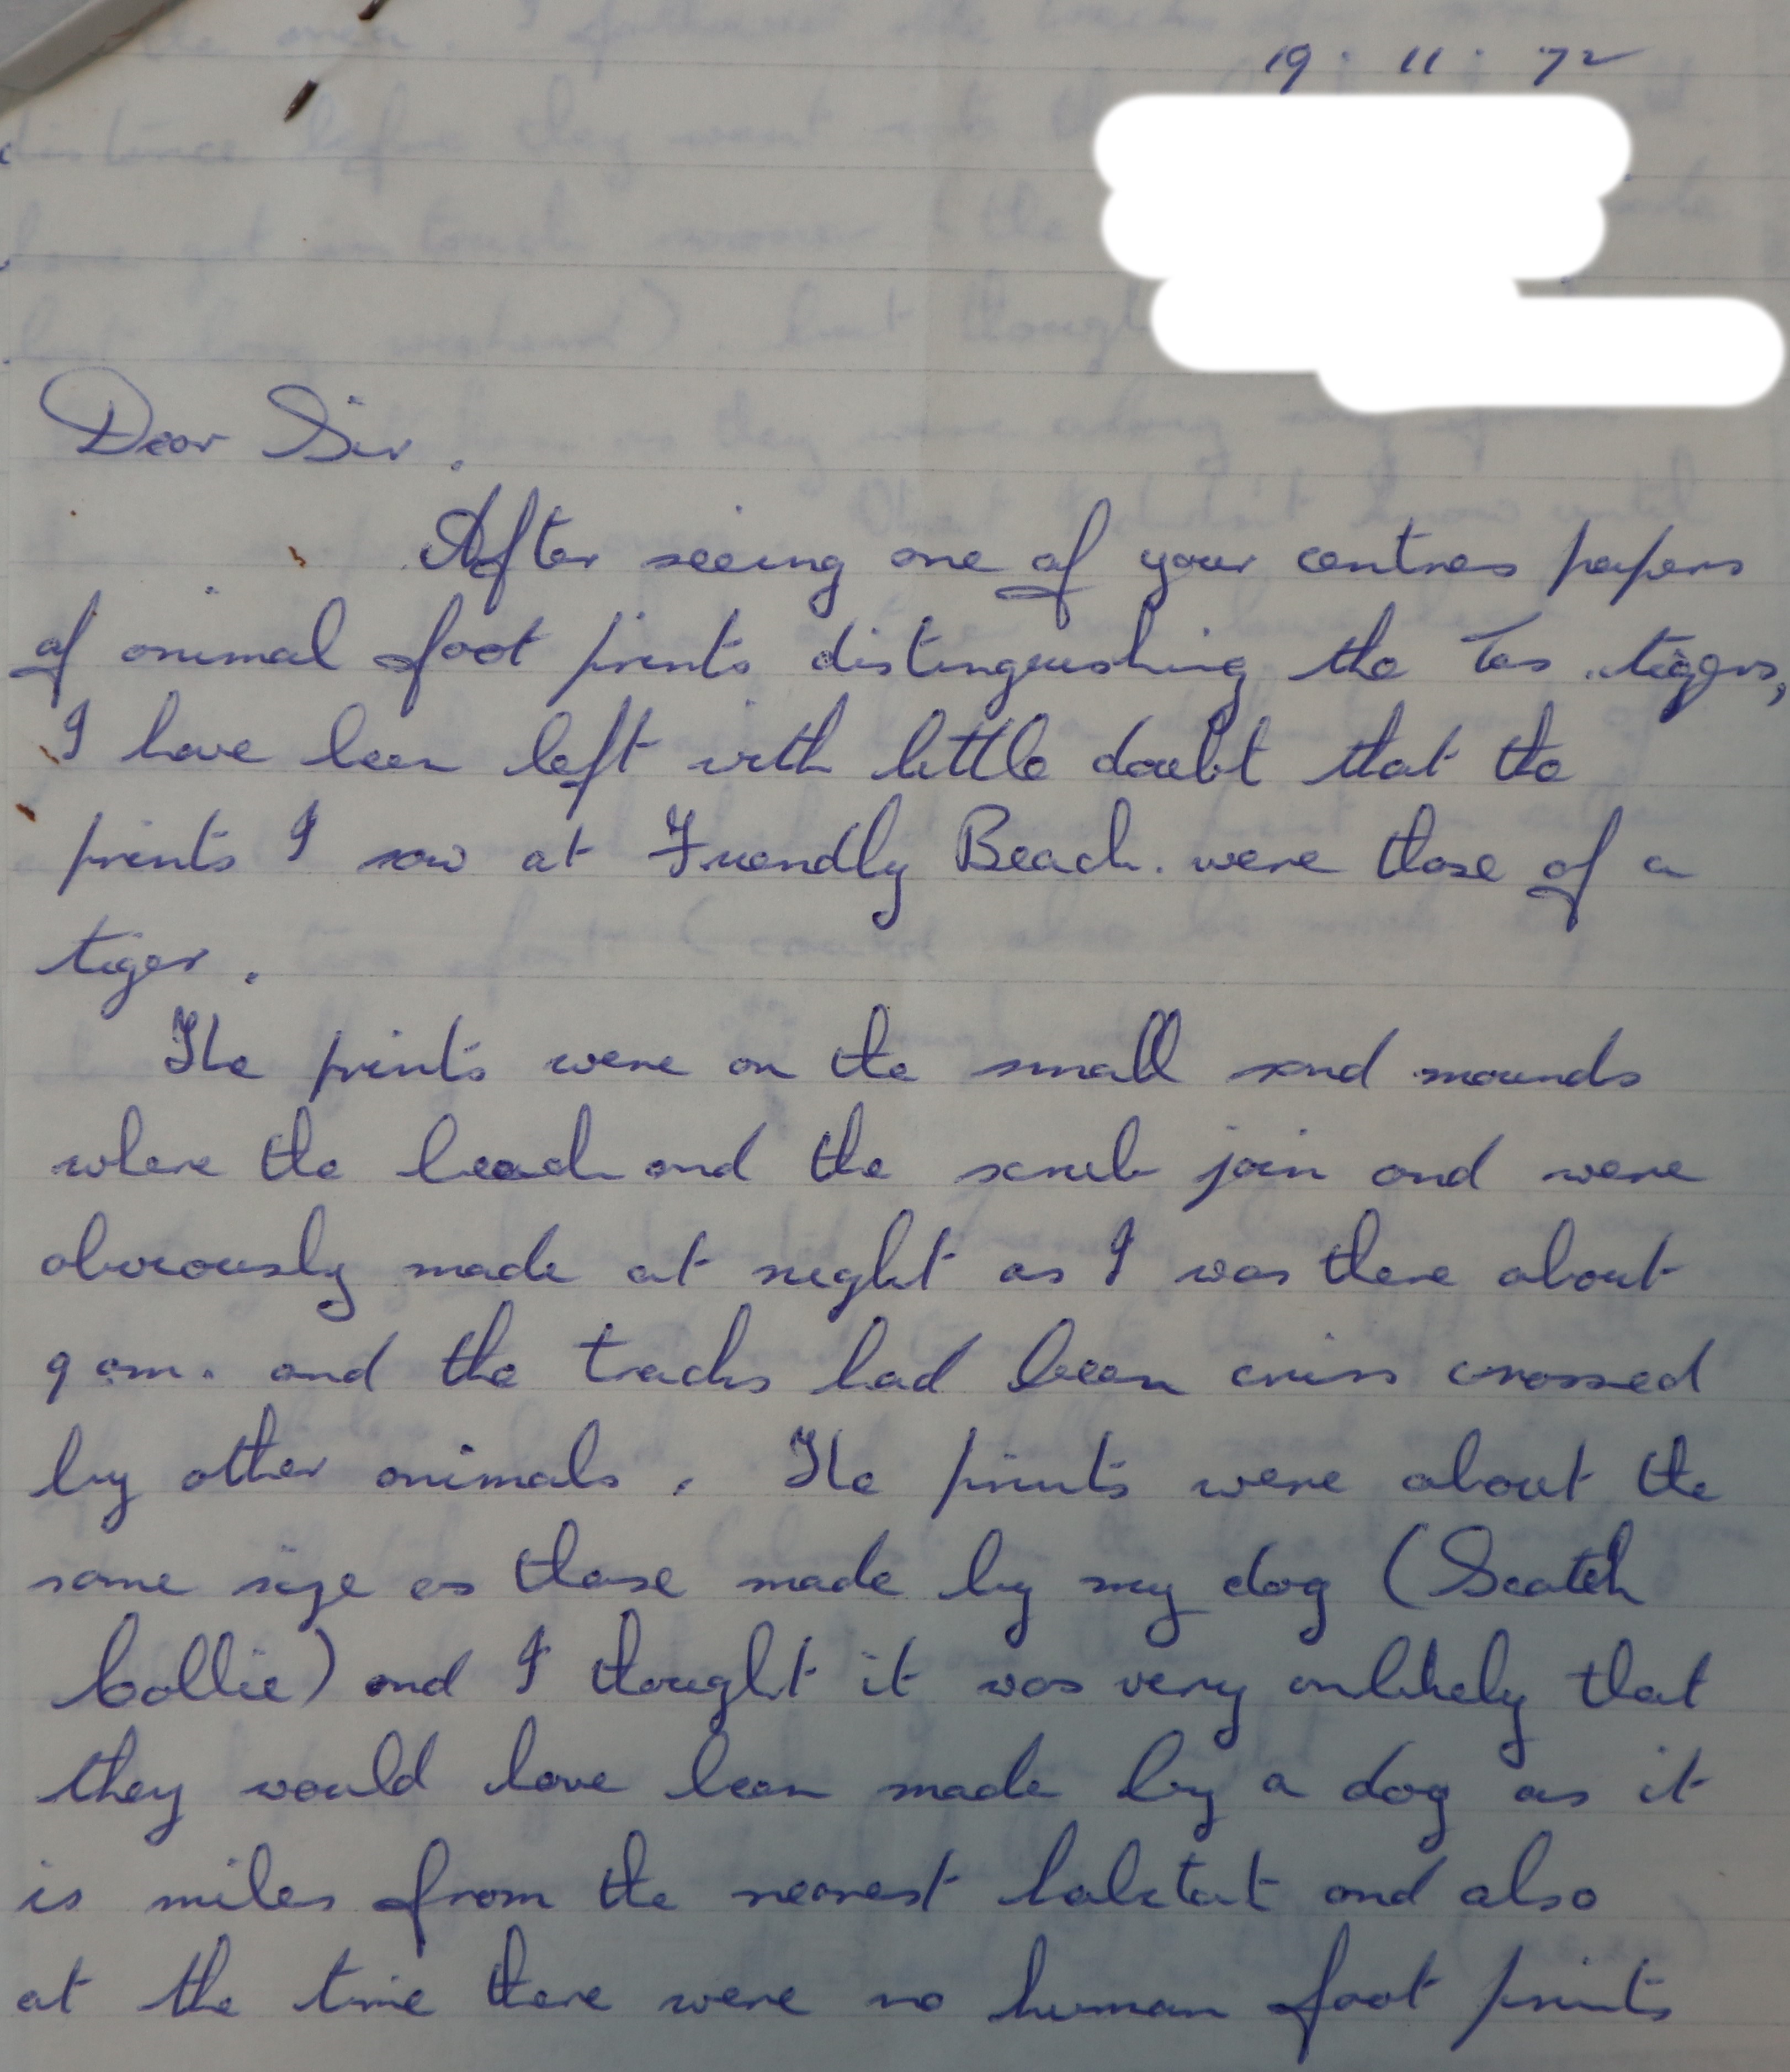 19 . 11 . 72
Dear Sir.
After seeing one of your centres papers
of animal foot prints distinguishing the Tas. tigers,
I have been left with little doubt that the
prints I saw at Friendly Beach. were those of a
tiger.
The prints were on the small sand mounds
where the beach and the scrub join and were
obviously made at night as I was there about
9 am. and the tracks had been criss crossed
by other animals. The prints were about the
same size as those made by my dog (Scotch
Collie) and I thought it was very unlikely that
they would have been made by a dog as it
is miles from the nearest habitat and also
at the time there were no human foot prints